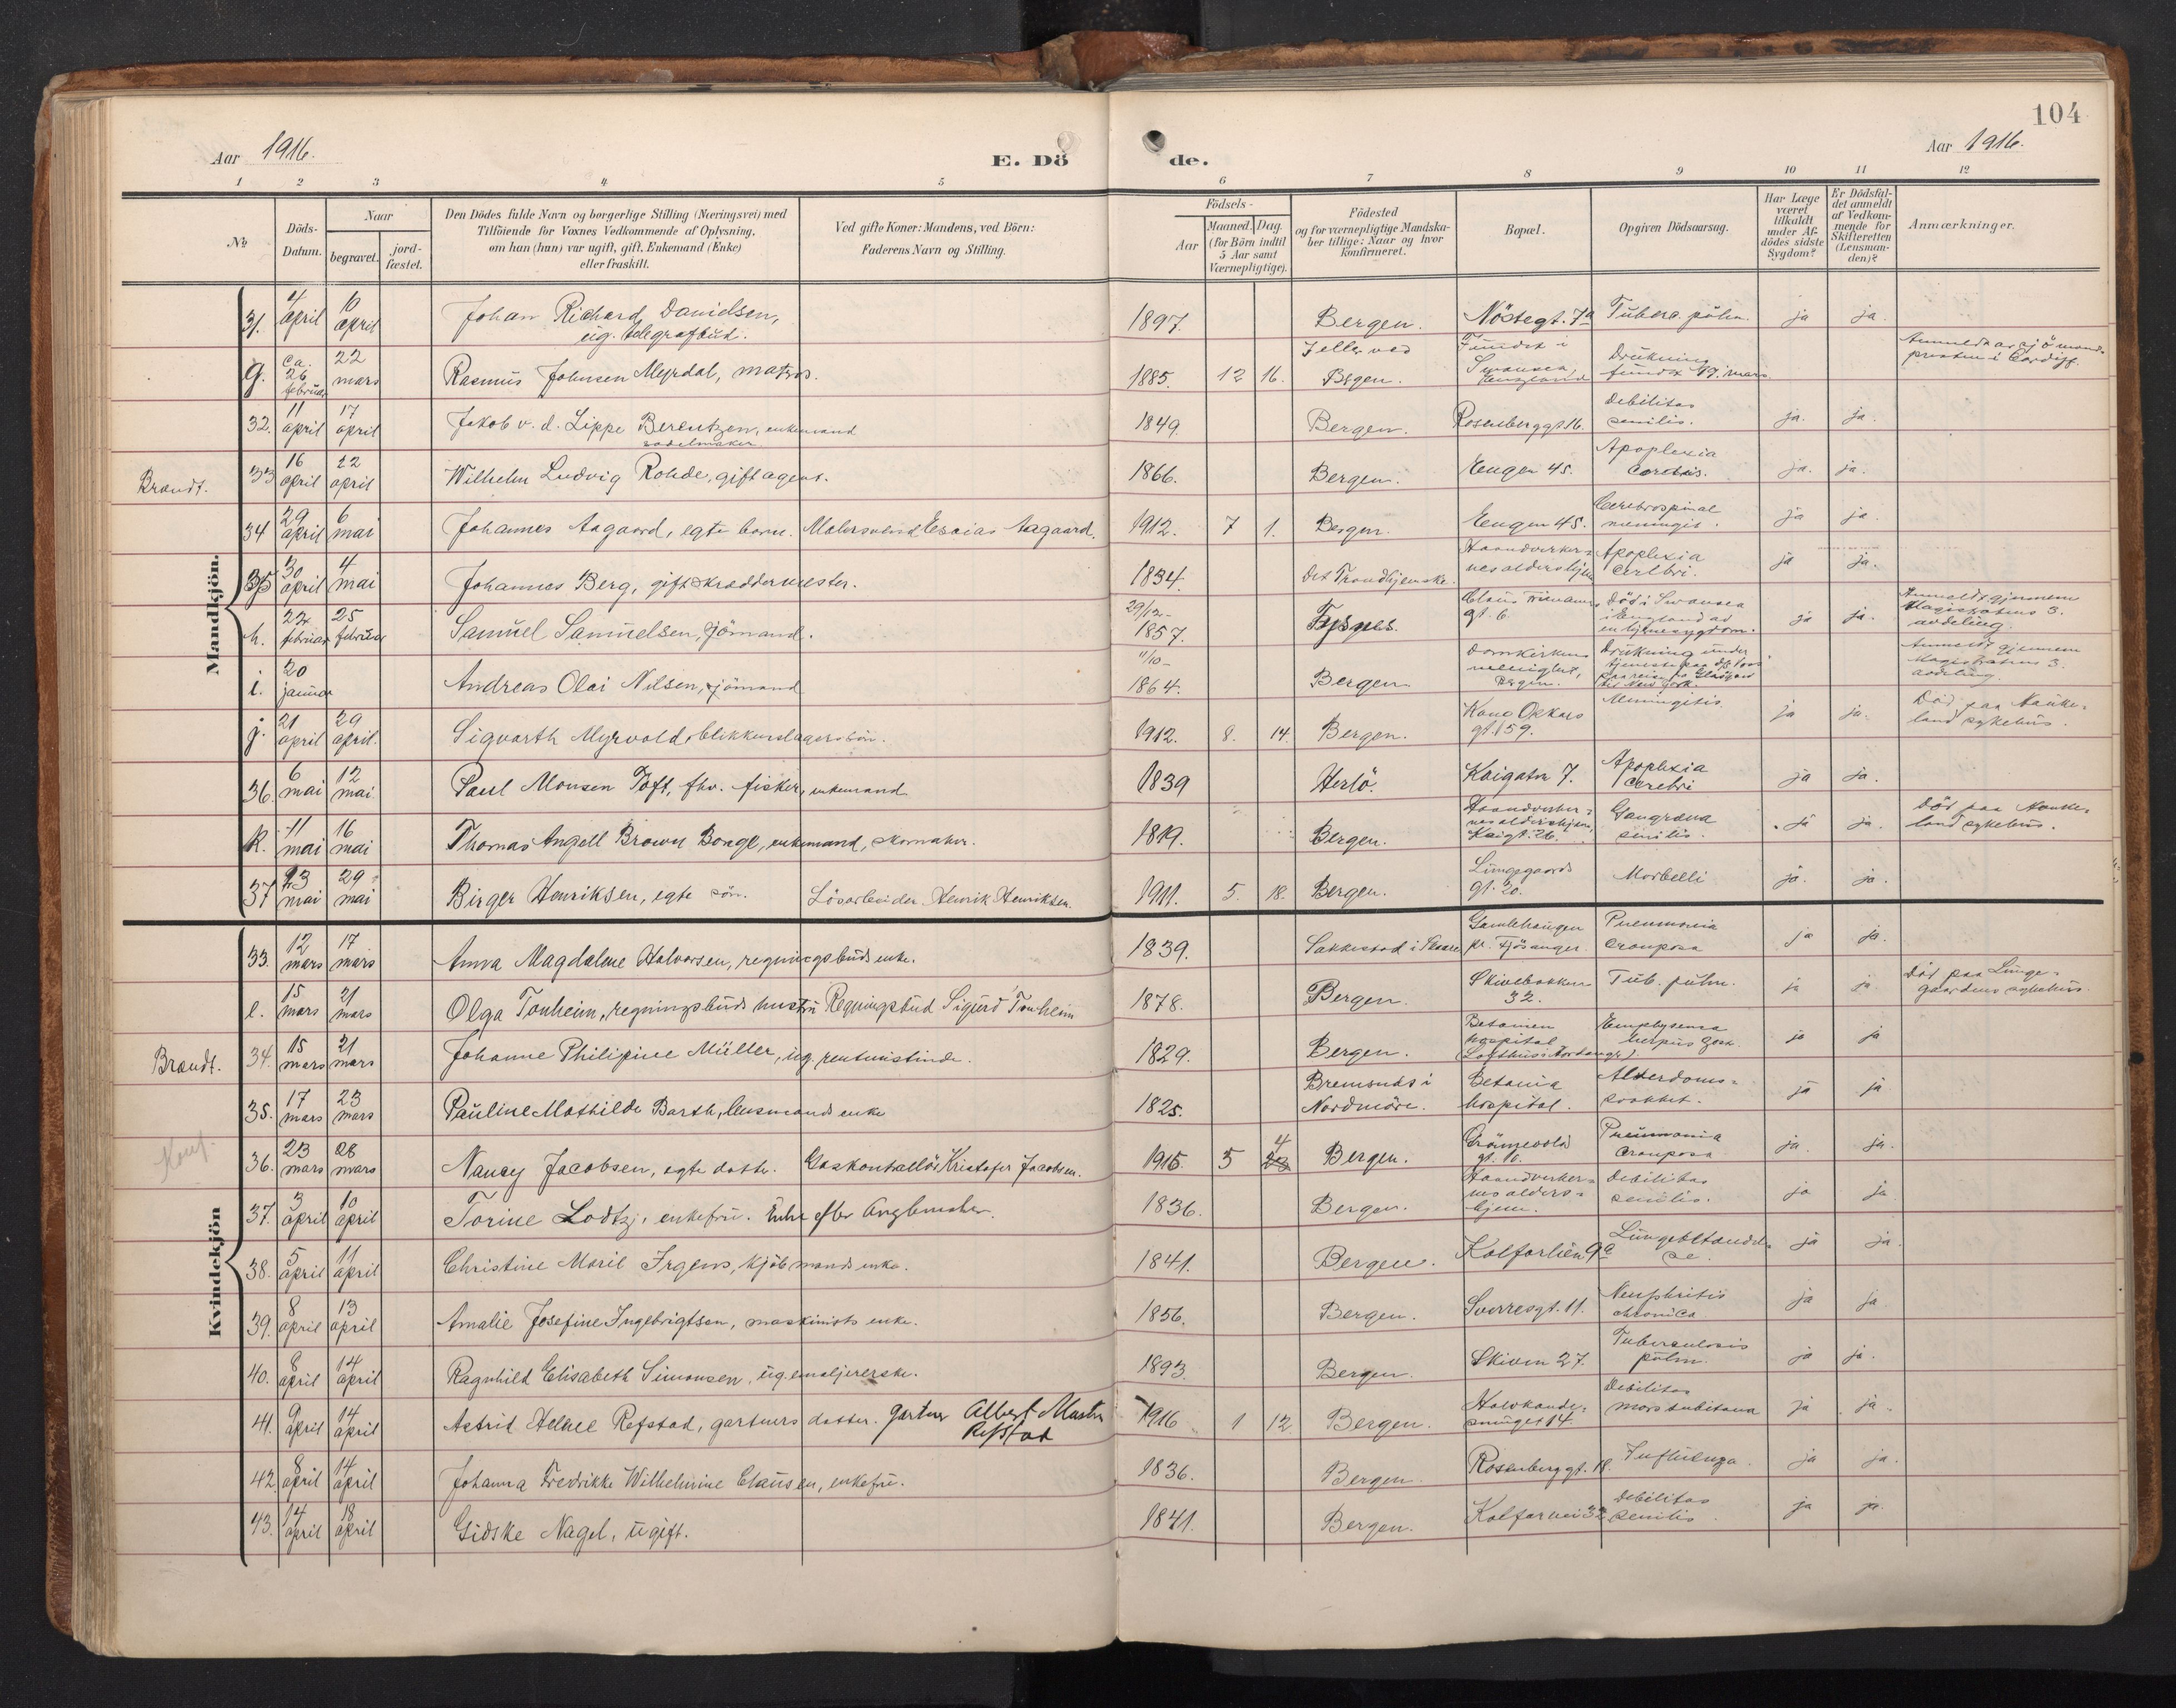 104
Aar 1916.
E. Döde.
Aar 1916.
1 2 3 4 5 6 7 8 9 10 11 12
No
Döds-Datum.
Naar begravet. jordfæstet.
Den Dödes fulde Navn og borgerlige Stilling (Næringsvei) med
Tilföiende for Voxnes Vedkommende af Oplysning,
om han (hun) var ugift, gift, Enkemand (Enke)
eller fraskilt.
Ved gifte Koner: Mandens, ved Börn:
Faderens Navn og Stilling.
Födsels-
Aar Maaned. Dag.
(for Börn indtil
5 Aar samt
Værnepligtige).
Födested
og for værnepligtige Mandska-
ber tillige: Naar og hvor
konfirmeret.
Bopæl.
Opgiven Dödsaarsag.
Har Læge
været
tilkaldt
under Af-
dödes sidste
Sygdom?
Er Dödsfal-
det anmeldt
af Vedkom-
mende for
Skifteretten
(Lensman-
den)?
Anmærkninger.
Mandkjön.
31. 4 april 10 april Johan Richard Danielsen, ug. telegrafbud. 1897. Bergen. Nöstegt. 7a Tuberc. pulm. ja ja.
g. ca. 26 februar 22 mars Rasmus Johnsen Myrdal, matros. 1885. 12 16. I eller ved Bergen. Fundet i Swansea, England Drukning fundet 17. mars. Anmeldt av sjömandspresten i Cardiff.
32. 11 april 17 april Jakob v. d. Lippe Berentzen, enkemand sadelmaker 1849. Bergen. Rosenberggt 16. Debilitas senilis. ja. ja.
Brandt. 33 16 april 22 april Wilhelm Ludvig Rohde, gift agent. 1866. Bergen. Engen 45. Apoplexia cerebri. ja. ja.
34 29 april 6 mai Johannes Aagaard, egte barn. Malersvend Esaias Aagaard. 1912. 7 1. Bergen. Engen 45. Cerebrospinal meningit. ja ja.
35 30 april 4 mai Johannes Berg, gift skræddermester. 1834. Det Trondhjemske. Haandverkernes aldershjem Apoplexia cerebri. ja ja.
h. 22 februar 25 februar Samuel Samuelsen, sjömand. 29/12- 1857. Tysnes. Claus Frimanns gt. 6. Död i Swansea i England av en hjernesygdom. ja ja. Anmeldt gjennem Magistratens 3. avdeling.
i. 20 januar Andreas Olai Nilsen, sjömand 11/10- 1864. Bergen Domkirkens menighet, Bergen. Drukning under tjeneste paa paa reise fra Glasgow til New York. Anmeldt gjennem Magistratens 3. avdeling.
j. 21 april 29 april. Sigvarth Myrvold, blikkenslagers sön. 1912. 8. 14. Bergen. Kong Oskars gt. 59. Meningitis. ja ja. Död paa Haukeland sykehus.
36. 6 mai 12 mai Paul Monsen Toft, fhv. fisker, enkemand 1839 Herlö. Kaigaten 7. Apoplexia cerebri ja ja.
k. 11 mai 16 mai Thomas Angell Brown Bonge, enkemand, skomaker. 1819. Bergen. Haandverkernes aldershjem, Kaigt. 26. Gangræna senilis. ja ja. Död paa Haukeland sykehus.
37 23 mai 29 mai Birger Henriksen, egte sön. Lösarbeider Henrik Henriksen. 1911. 5. 18. Bergen. Lungegaards gt. 20. Morbelli ja. ja.
Kvindekjön
33. 12 mars 17 mars Anna Magdalene Halvorsen, regningsbuds enke. 1839. Sakkestad i Skaare Gamlehaugen pr. Fjösanger. Pneumonia crouposa ja ja.
l. 15 mars 21 mars Olga Tonheim, regningsbuds hustru Regningsbud Sigurd Tonheim 1878. Bergen. Skivebakken 32. Tub. pulm. ja ja. Död paa Lungegaardens sykehus.
Brandt. 34. 15 mars 21 mars Johanne Philipine Müller, ug. rentenistinde. 1829. Bergen. Betanien hospital (Lofthus i Hardanger). Emphysema herpus zost. ja ja
35. 17 mars 23 mars Pauline Mathilde Barth, lensmands enke 1825. Bremsnes i Nordmöre. Betania hospital. Alderdomssvakhet. ja ja
Konf. 36. 23 mars 28 mars Nancy Jacobsen, egte datter. Gaskontrollör Kristofer Jacobsen. 1915. 5 4 23 Bergen. Grönnevolds gt. 10. Pneumonia crouposa ja. ja.
37. 3 april 10 april Torine Lodtz, enkefru. Enke efter 1836. Bergen. Haandverkernes aldershjem. Debilitas senilis. ja ja.
38. 5 april 11 april Christine Marie Irgens, kjöbmands enke. 1841. Bergen. Kalfarlien 9a Lungebetændelse. ja ja.
39. 8 april 13 april Amalie Josefine Ingebrigtsen, maskinists enke. 1856. Bergen. Sverresgt. 11. Nephritis chronica ja ja
40. 8 april 14 april Ragnhild Elisabeth Simonsen, ug. emaljererske. 1893. Bergen. Skiven 27. Tuberculosis pulm. ja ja.
41. 9 april 14 april Astrid Helene Refstad, gartners datter. Gartner Albert Martin Refstad 1916 1 12 Bergen. Halvkandesmuget 14. Debilitas mors subitana ja ja.
42. 8 april 14 april Johanna Fredrikke Wilhelmine Clausen, enkefru. 1836. Bergen. Rosenberggt. 18. Influenza. ja ja.
43. 14 april 18 april Gidske Nagel, ugift. 1841. Bergen. Kalfarvei 32 Debilitas senilis. ja ja.